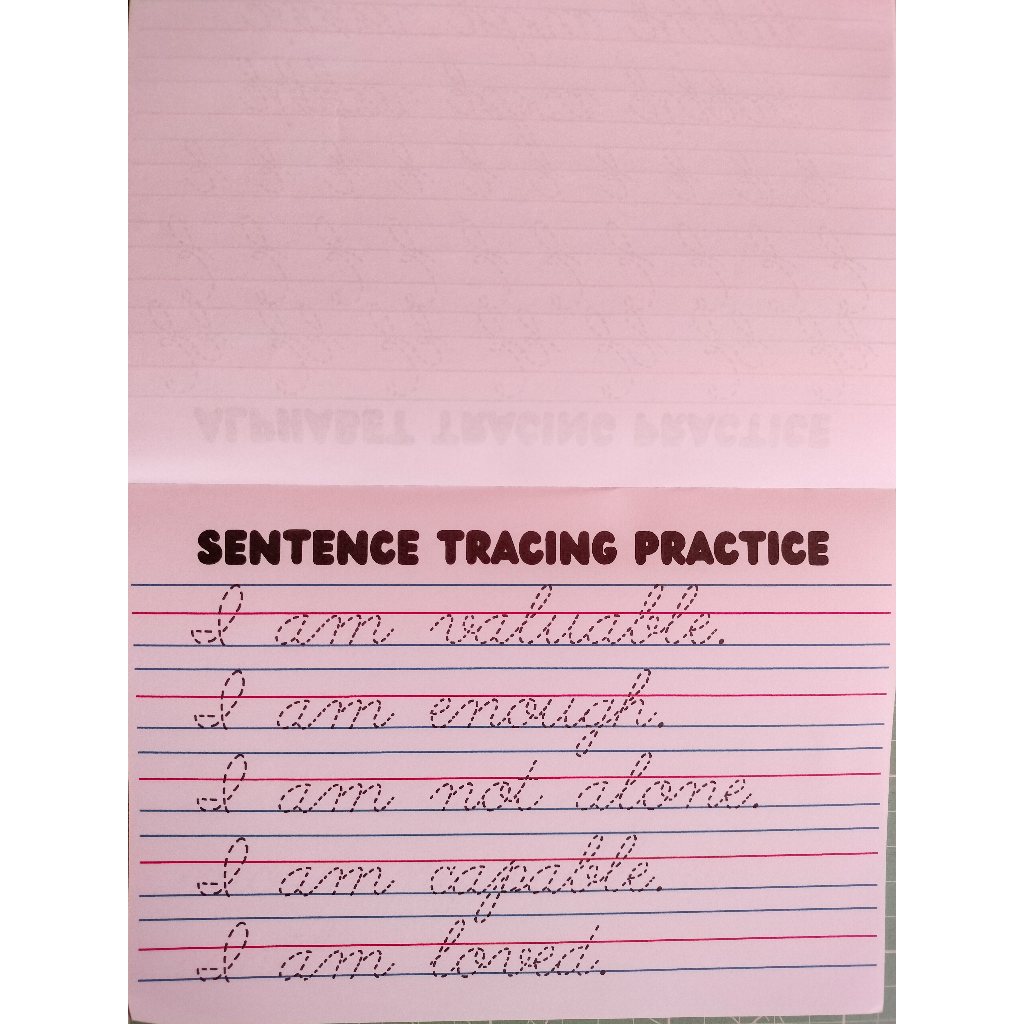 ALPHABET TRACING PRACTICE
SENTENCE TRACING PRACTICE
I am valuable.
I am enough.
I am not alone.
I am capable.
I am loved.